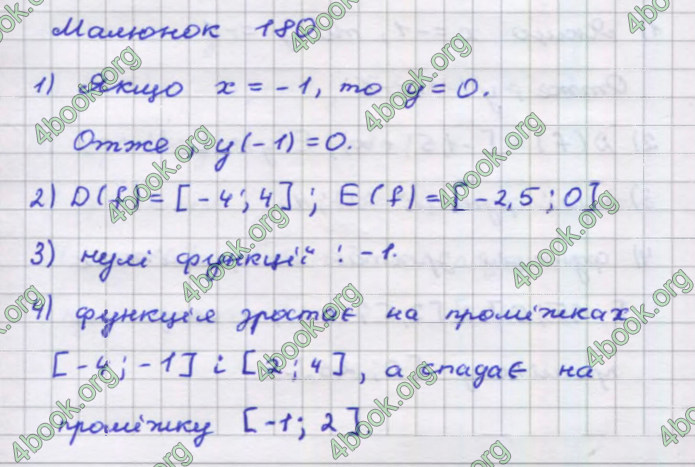 Малюнок 180
1) Якщо x = -1, то y = 0.
Отже, y(-1) = 0.
2) D(f) = [-4; 4]; E(f) = [-2,5; 0]
3) нулі функції: -1.
4) функція зростає на проміжках
[-4; -1] і [2; 4], а спадає на
проміжку [-1; 2].
4book.org
4book.org
4book.org
4book.org
4book.org
4book.org
4book.org
4book.org
4book.org
4book.org
4book.org
4book.org